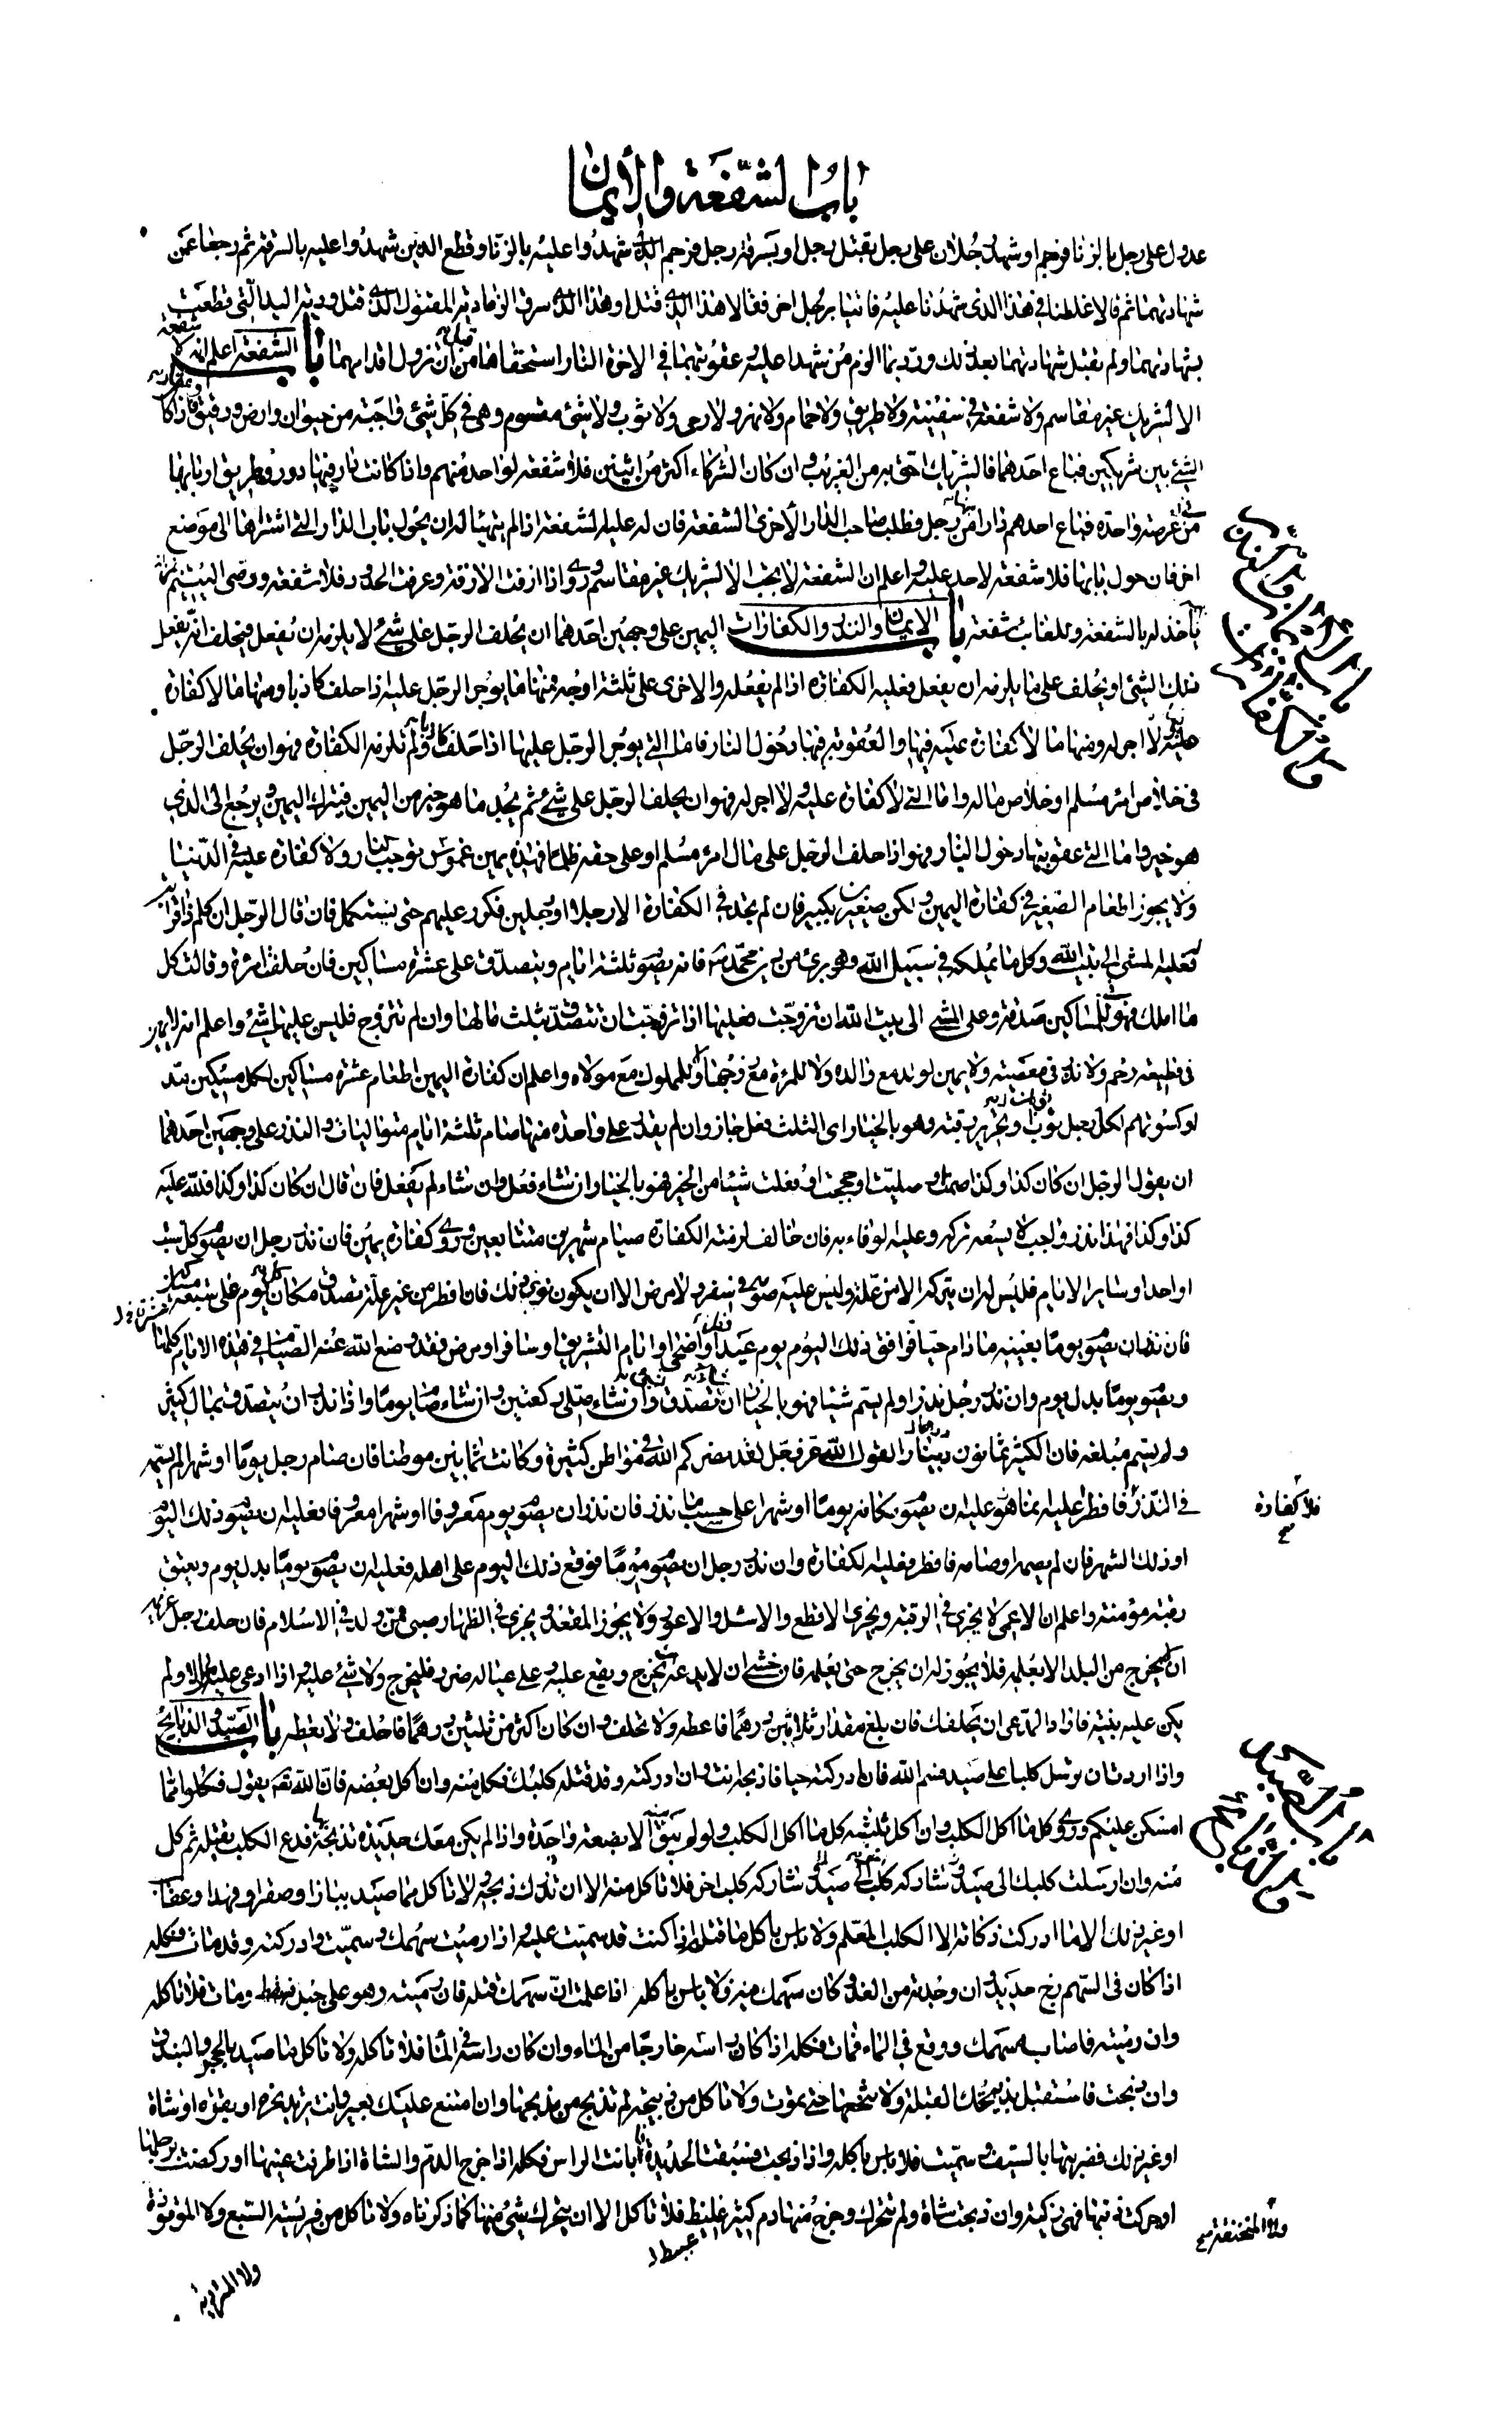 باب الشفعة والأيمان
عدول على رجل بالزنا فرجم او شهد رجلان على رجل بقتل رجل او بسرقة رجل فرجم الذي شهدوا عليه بالزنا وقطع الذين شهدوا عليه بالسرقة ثم رجعا عن
شهادتهما ثم قالا غلطنا في هذا الذي شهدنا عليه فاتيا برجل اخر فقالا هذا الذي قتل او هذا الذي سرق الزما دية المقتول الذي قتل ودية اليد التي قطعت
بشهادتهما ولم تقبل شهادتهما بعد ذلك وعقوبتهما في الاخرة النار استحقاها من قبل ان تزول اقدامهما باب الشفعة اعلم انه لا شفعة
الا لشريك غير مقاسم ولا شفعة في سفينة ولا طريق ولا حمام ولا نهر ولا رحى ولا ثوب ولا شئ مقسوم وهي في كل شئ واجبة من حيوان وارض ورقيق فاذا كان
الشئ بين شريكين فباع احدهما فالشريك احق به من الغريب وان كان الشركاء اكثر من اثنين فلا شفعة لواحد منهم واذا كانت دار فيها دور وطريق اربابها
في عرصة واحدة فباع احدهم دارا من رجل فطلب صاحب الدار الأخرى الشفعة فان له عليه الشفعة اذا لم يتهيأ له ان يحول باب الدار التي اشتراها الى موضع
اخر فان حول بابها فلا شفعة لاحد عليه واعلم ان الشفعة لا تجب الا لشريك غير مقاسم وروى اذا ارفت الارفة وعرفت الحدود فلا شفعة ووصى اليتيم بمنزلة
يأخذ له بالشفعة وللغائب شفعة باب الايمان والنذور والكفارات اليمين على وجهين احدهما ان يحلف الرجل على شئ لا يلزمه ان يفعل فيحلف انه يفعل
ذلك الشئ او يحلف على ما يلزمه ان يفعل فعليه الكفارة اذا لم يفعله والاخرى على ثلثة اوجه فمنها ما يوجر الرجل عليه اذا حلف كاذبا ومنها ما لا كفارة
عليه ولا اجر له ومنها ما لا كفارة عليه فيها والعقوبة فيها دخول النار فاما التي يوجر الرجل عليها اذا حلف كاذبا ولم تلزمه الكفارة فهو ان يحلف الرجل
في خلاص امرء مسلم او خلاص ماله واما التي لا كفارة عليه ولا اجر له فهو ان يحلف الرجل على شئ ثم يجد ما هو خير من اليمين فيترك اليمين ويرجع الى الذي
هو خير واما التي عقوبتها دخول النار فهو اذا حلف الرجل على مال امرء مسلم او على حقه ظلما فهذه يمين غموس توجب النار ولا كفارة عليه في الدنيا
ولا يجوز اطعام الصغير في كفارة اليمين ولكن صغيرين بكبير فان لم تجد في الكفارة الا رجلا او رجلين فكرر عليهم حتى تستكمل فان قال الرجل ان كلم ذا قرابة
فعليه المشى الى بيت الله وكل ما يملكه في سبيل الله وهو برئ من دين محمد فانه يصوم ثلثة ايام ويتصدق على عشرة مساكين فان حلفت امرأة وقالت كل
ما املك فهو للمساكين صدقة وعلى المشى الى بيت الله ان تزوجت فعليها اذا تزوجت ان تتصدق بثلث مالها وان لم تتزوج فليس عليها شئ واعلم انه لا يمين
في قطيعة رحم ولا نذر في معصية ولا يمين لولد مع والده ولا للمرأة مع زوجها ولا للمملوك مع مولاه واعلم ان كفارة اليمين اطعام عشرة مساكين لكل مسكين مد
او كسوتهم لكل رجل ثوب وتحرير رقبة وهو بالخيار اى الثلث فعل جاز وان لم يقدر على واحدة منها صام ثلثة ايام متواليات والنذر على وجهين احدهما
ان يقول الرجل ان كان كذا وكذا صمت او صليت او حججت او فعلت شيئا من الخير فهو بالخيار ان شاء فعل وان شاء لم يفعل فان قال ان كان كذا وكذا فلله عليه
كذا وكذا فهذا نذر واجب لا يسعه تركه وعليه الوفاء به فان خالف لزمته الكفارة صيام شهرين متتابعين وروى كفارة يمين فان نذر رجل ان يصوم كل سبت
او احدا وسائر الايام فليس له ان يتركه الا من علة وليس عليه صومه في سفر ولا مرض الا ان يكون نوى ذلك فان افطر من غير علة تصدق مكان كل يوم على سبعة مساكين
فان نذر ان يصوم يوما بعينه ما دام حيا فوافق ذلك اليوم يوم عيد فطر او اضحى او ايام التشريق او سافر او مرض فقد وضع الله عنه الصيام في هذه الايام كلها
ويصوم يوما بدل يوم وان نذر رجل نذرا ولم يسم شيئا فهو بالخيار ان شاء تصدق وان شاء صلى ركعتين وان شاء صام يوما واذا نذر ان يتصدق بمال كثير
ولم يسم مبلغه فان الكثير ثمانون دينارا لقول الله عز وجل لقد نصركم الله في مواطن كثيرة وكانت ثمانين موطنا فان صام رجل يوما او شهرا لم يسمه
في النذر فافطر فلا كفارة عليه انما هو عليه ان يصوم مكانه يوما او شهرا على حسب ما نذر فان نذر ان يصوم يوم معروفا او شهرا معروفا فعليه ان يصوم ذلك اليوم
او ذلك الشهر فان لم يصمه او صامه فافطر فعليه الكفارة وان نذر رجل ان يصوم يوما فوقع ذلك اليوم على اهله فعليه ان يصوم يوما بدل يوم ويعتق
رقبة مؤمنة واعلم ان الاعمى لا يجزى في الرقبة ويجزى الاقطع والاشل والاعرج ولا يجوز المقعد ويجزى في الظهار صبى ممن ولد في الاسلام فان حلف رجل غريمه
ان لا يخرج من البلد الا بعلمه فلا يجوز له ان يخرج حتى يعلمه فان خشى ان لا يدعه يخرج ويقع عليه وعلى عياله ضرر فليخرج ولا شئ عليه واذا ادعى عليه مالا ولم
يكن عليه بينة فاذا اراد المدعى ان يحلفك فان بلغ مقدار ثلاثين درهما فاعطه ولا تحلف وان كان اكثر من ثلثين درهما فاحلف ولا تعطه باب الصيد والذبائح
واذا اردت ان ترسل كلبا على صيد فسم الله فان ادركته حيا فاذبحه انت وان ادركته وقد قتله كلبك فكل منه وان اكل بعضه فان الله تعالى يقول فكلوا مما
امسكن عليكم وروى كل ما اكل الكلب وان اكل ثلثيه كل ما اكل الكلب ولو لم يبق منه الا بضعة واحدة واذا لم يكن معك حديدة تذبحه بها فدع الكلب يقتله ثم كل
منه وان ارسلت كلبك الى صيد وشاركه كلب اخر فلا تأكل منه الا ان تدرك ذبحه ولا تأكل مما صيد بباز او صقر او فهد او عقاب
او غير ذلك الا ما ادركت ذكاته الا الكلب المعلم ولا بأس باكل ما قتله اذا كنت قد سميت عليه واذا رميت سهمك وسميت وادركته وقد مات فكله
اذا كان في السهم زج حديد وان وجدته من الغد وكان سهمك فيه فلا بأس باكله اذا علمت ان سهمك قتله فان رميته وهو على جبل فسقط ومات فلا تأكله
وان رميته فاصابه سهمك ووقع في الماء فمات فكله اذا كان رأسه خارجا من الماء وان كان رأسه في الماء فلا تأكله ولا تأكل ما صيد بالحجر والبندق
وان ذبحت فاستقبل بذبيحتك القبلة ولا تنخعها حتى تموت ولا تأكل من ذبيحة لم تذبح من مذبحها وان امتنع عليك بعير وانت تريد نحره او بقرة او شاة
او غير ذلك فضربتها بالسيف وسميت فلا بأس باكله واذا ذبحت فسبقت الحديدة فابانت الرأس فكله اذا خرج الدم والشاة اذا طرفت عينها او ركضت برجلها
او حركت ذنبها فهي ذكية وان ذبحت شاة ولم تتحرك وخرج منها دم كثير غليظ فلا تأكل الا ان يتحرك شئ منها كما ذكرناه ولا تأكل من فريسة السبع ولا الموقوذة
باب الأيمان والنذور والكفارات
فلا كفارة
باب الصيد والذبائح
ولا المنخنقة
عبيط
ولا المتردية